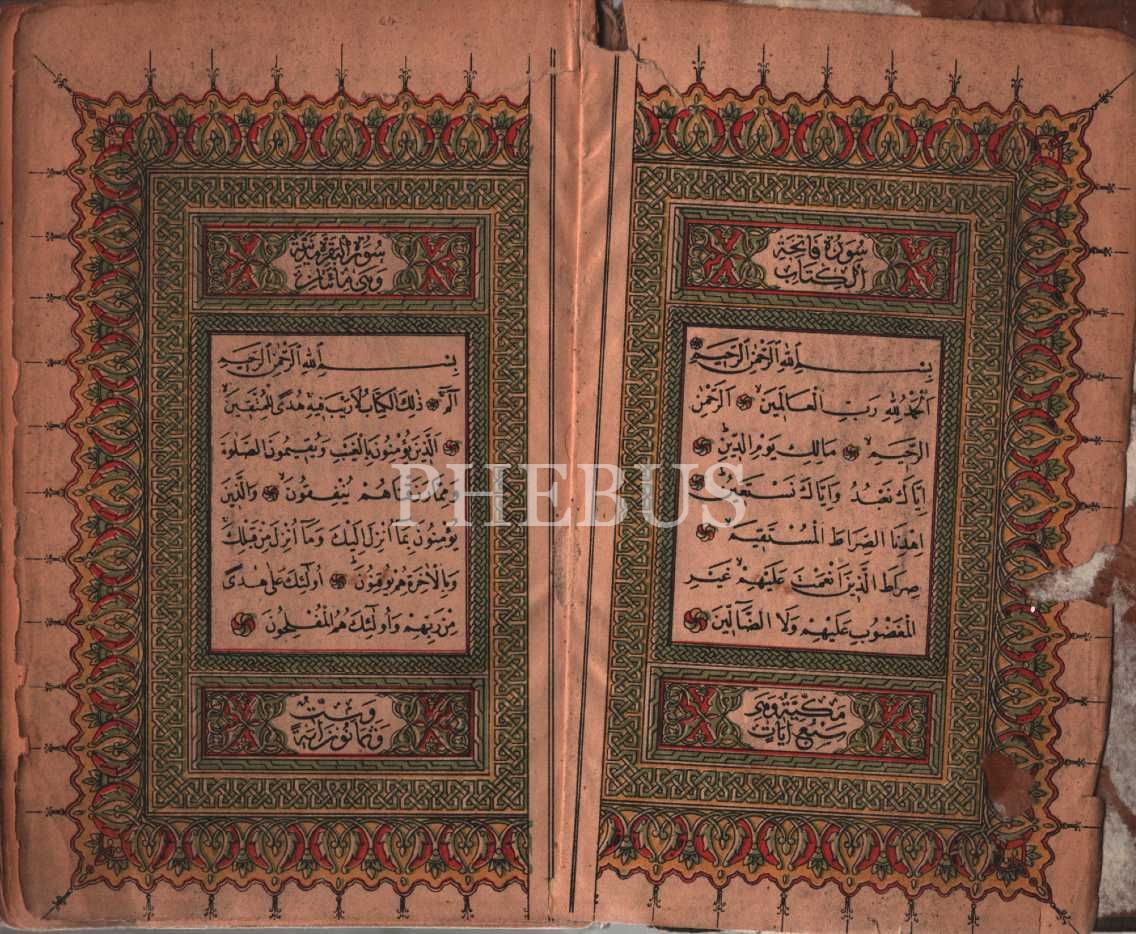 سورة فاتحة
الكتاب
بسم الله الرحمن الرحيم
الحمد لله رب العالمين الرحمن
الرحيم مالك يوم الدين
اياك نعبد واياك نستعين
اهدنا الصراط المستقيم
صراط الذين انعمت عليهم غير
المغضوب عليهم ولا الضالين
مكية وهي
سبع ايات
سورة البقرة مدنية
وهي مائتان
بسم الله الرحمن الرحيم
الم ذلك الكتاب لا ريب فيه هدى للمتقين
الذين يؤمنون بالغيب ويقيمون الصلوة
ومما رزقناهم ينفقون والذين
يؤمنون بما انزل اليك وما انزل من قبلك
وبالاخرة هم يوقنون اولئك على هدى
من ربهم واولئك هم المفلحون
وست
وثمانون اية
PHEBUS